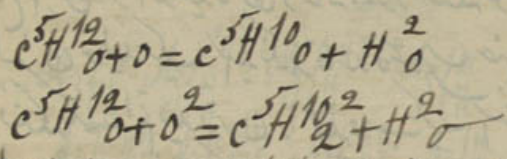 C⁵H¹²O+O=C⁵H¹⁰O+H²O
C⁵H¹²O+O²=C⁵H¹⁰²₂+H²O